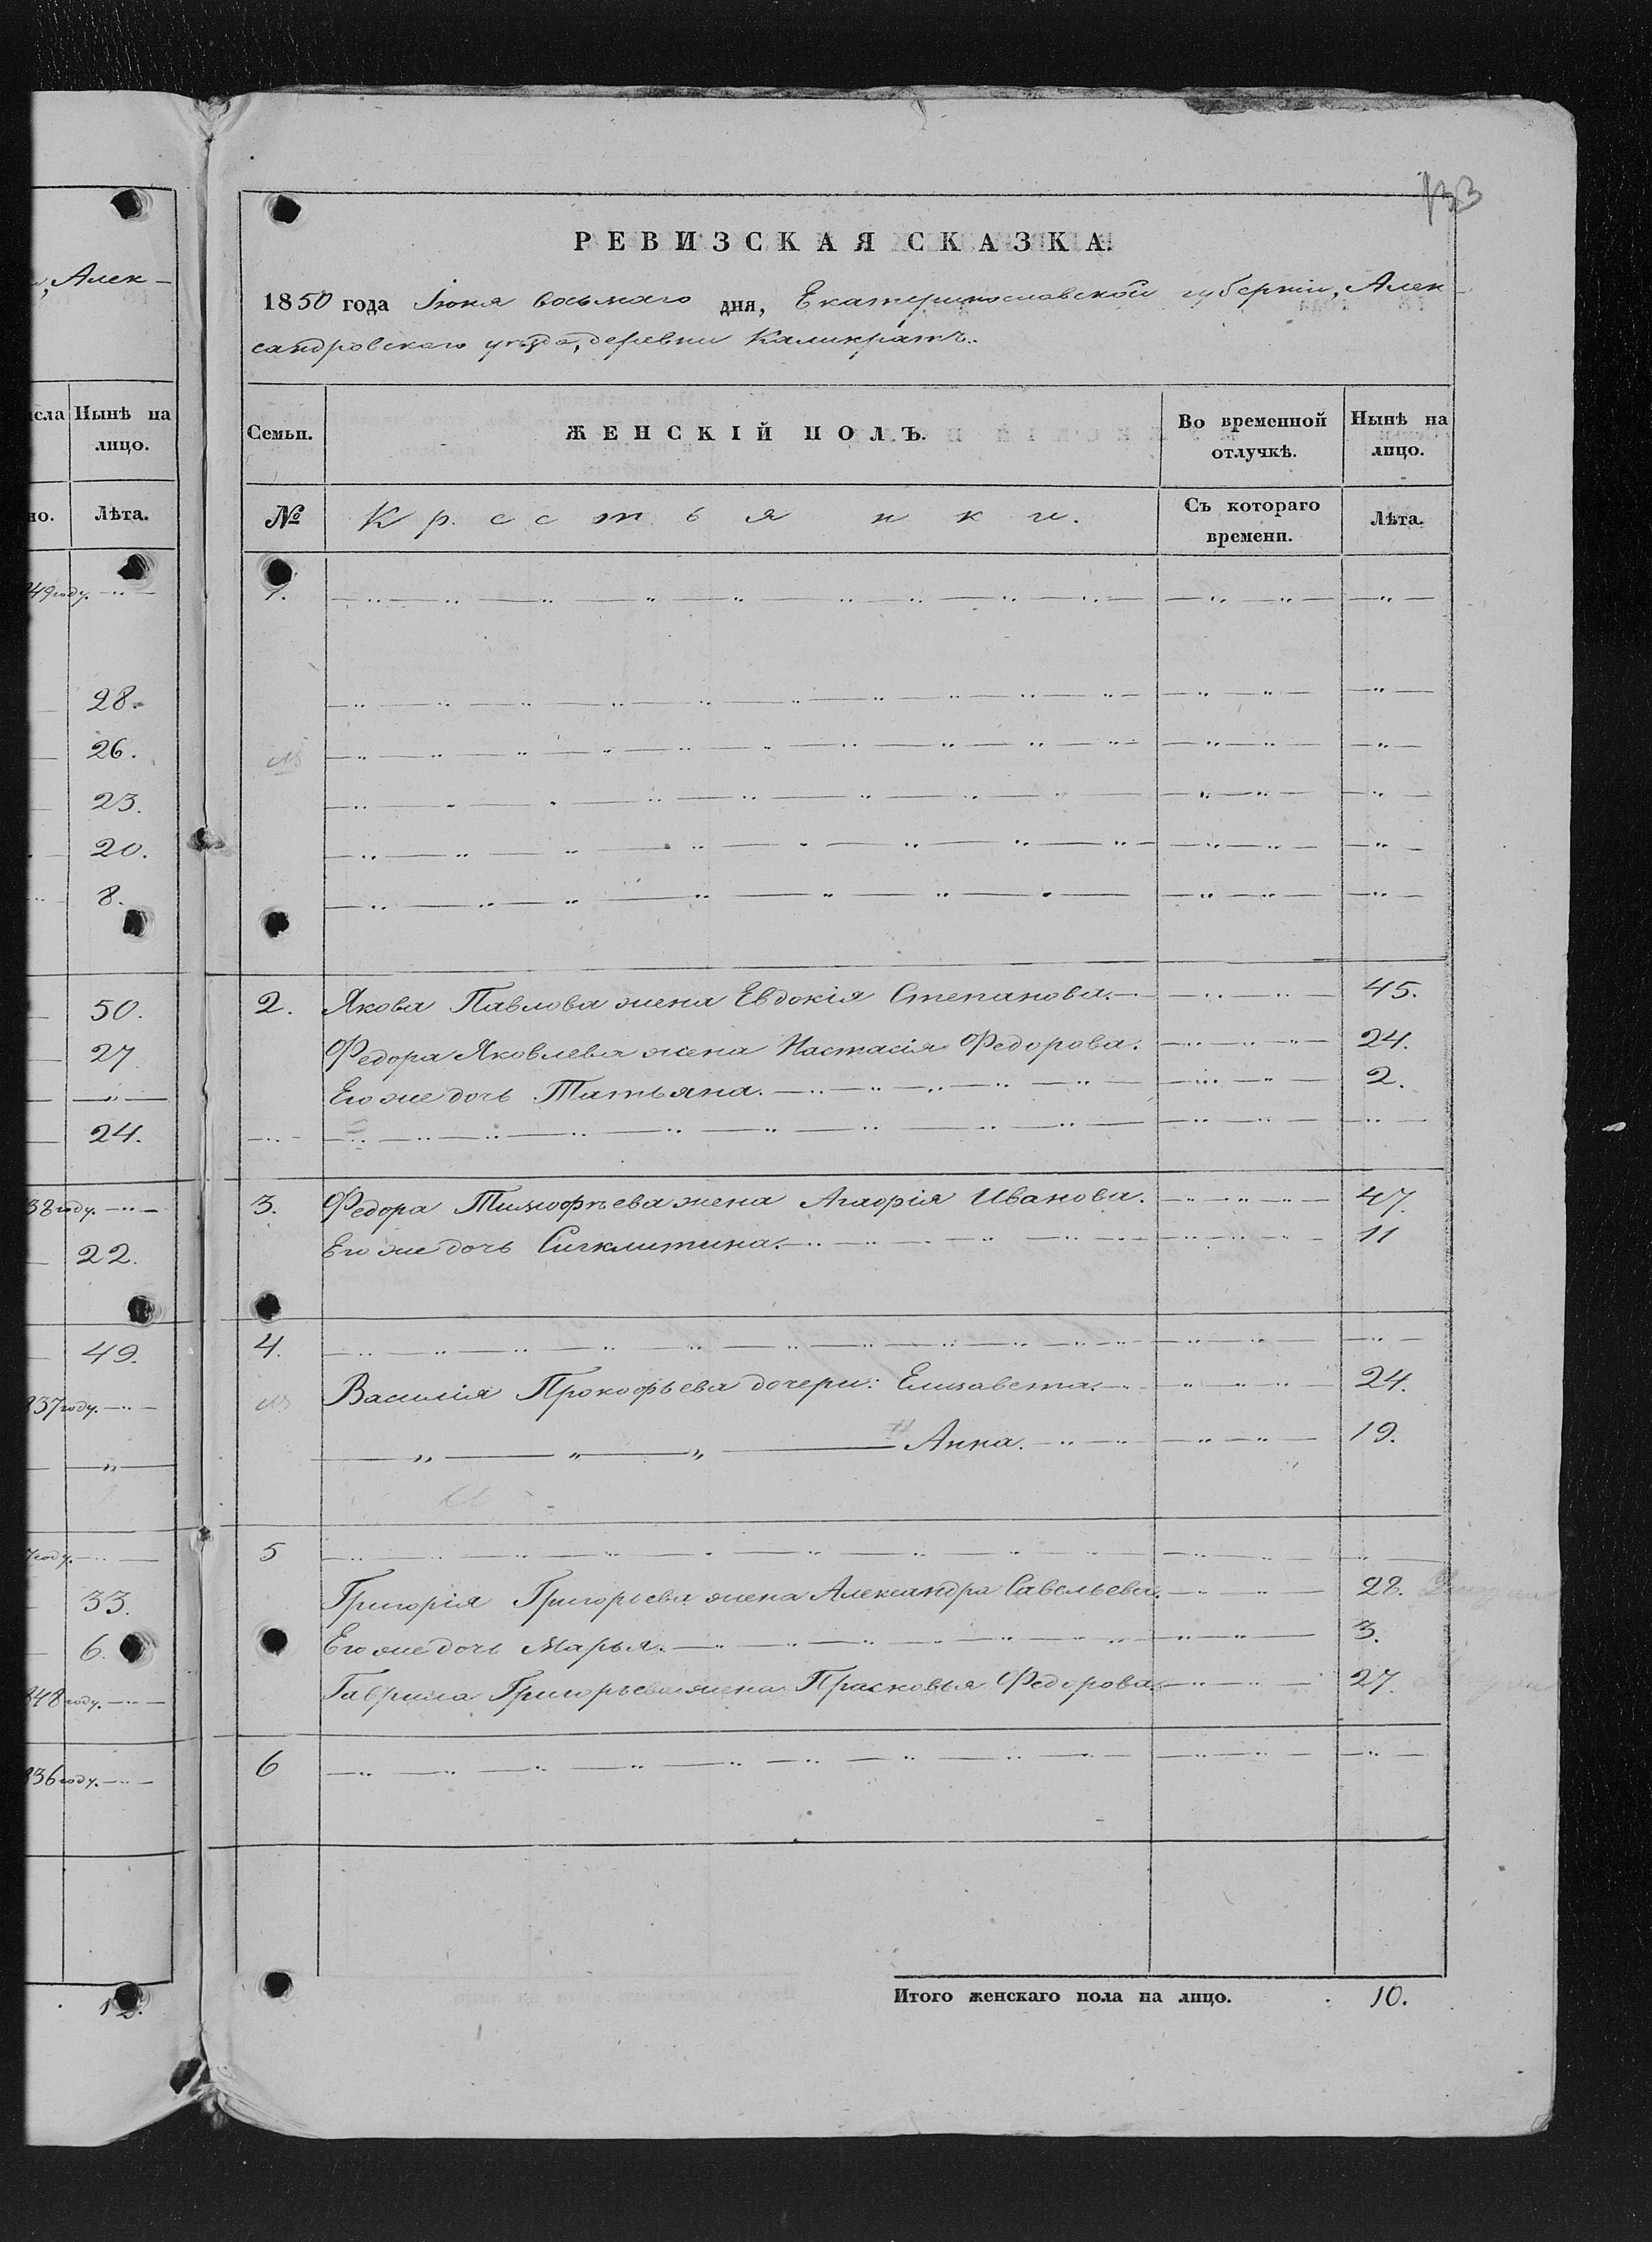 133
РЕВИЗСКАЯ СКАЗКА.
, Алек-
1850 года Іюня восьмаго дня, Екатеринославской губерніи, Алек-
сандровскаго уѣзда, деревни Каликратъ.
исла Нынѣ на лицо.
но. Лѣта.
Семьи. ЖЕНСКІЙ ПОЛЪ. Во временной отлучкѣ. Нынѣ на лицо.
№ Крестьянки. Съ котораго времени. Лѣта.
49 году.
1.
28.
26.
23.
20.
8.
50. 2. Якова Павлова жена Евдокія Степанова. 45.
27 Федора Яковлева жена Настасія Федорова. 24.
Его же дочь Татьяна. 2.
24.
38 году. 3. Федора Тимофѣева жена Агафія Иванова. 47.
22. Его же дочь Сиклитина. 11
49. 4.
837 году. Василія Прокофьева дочери: Елизавета. 24.
Анна. 19.
7 году. 5
33. Григорія Григорьева жена Александра Савельева. 28.
6. Его же дочь Марья. 3.
848 году. Гаврила Григорьева жена Прасковья Федорова. 27.
836 году. 6
12. Итого женскаго пола на лицо. 10.